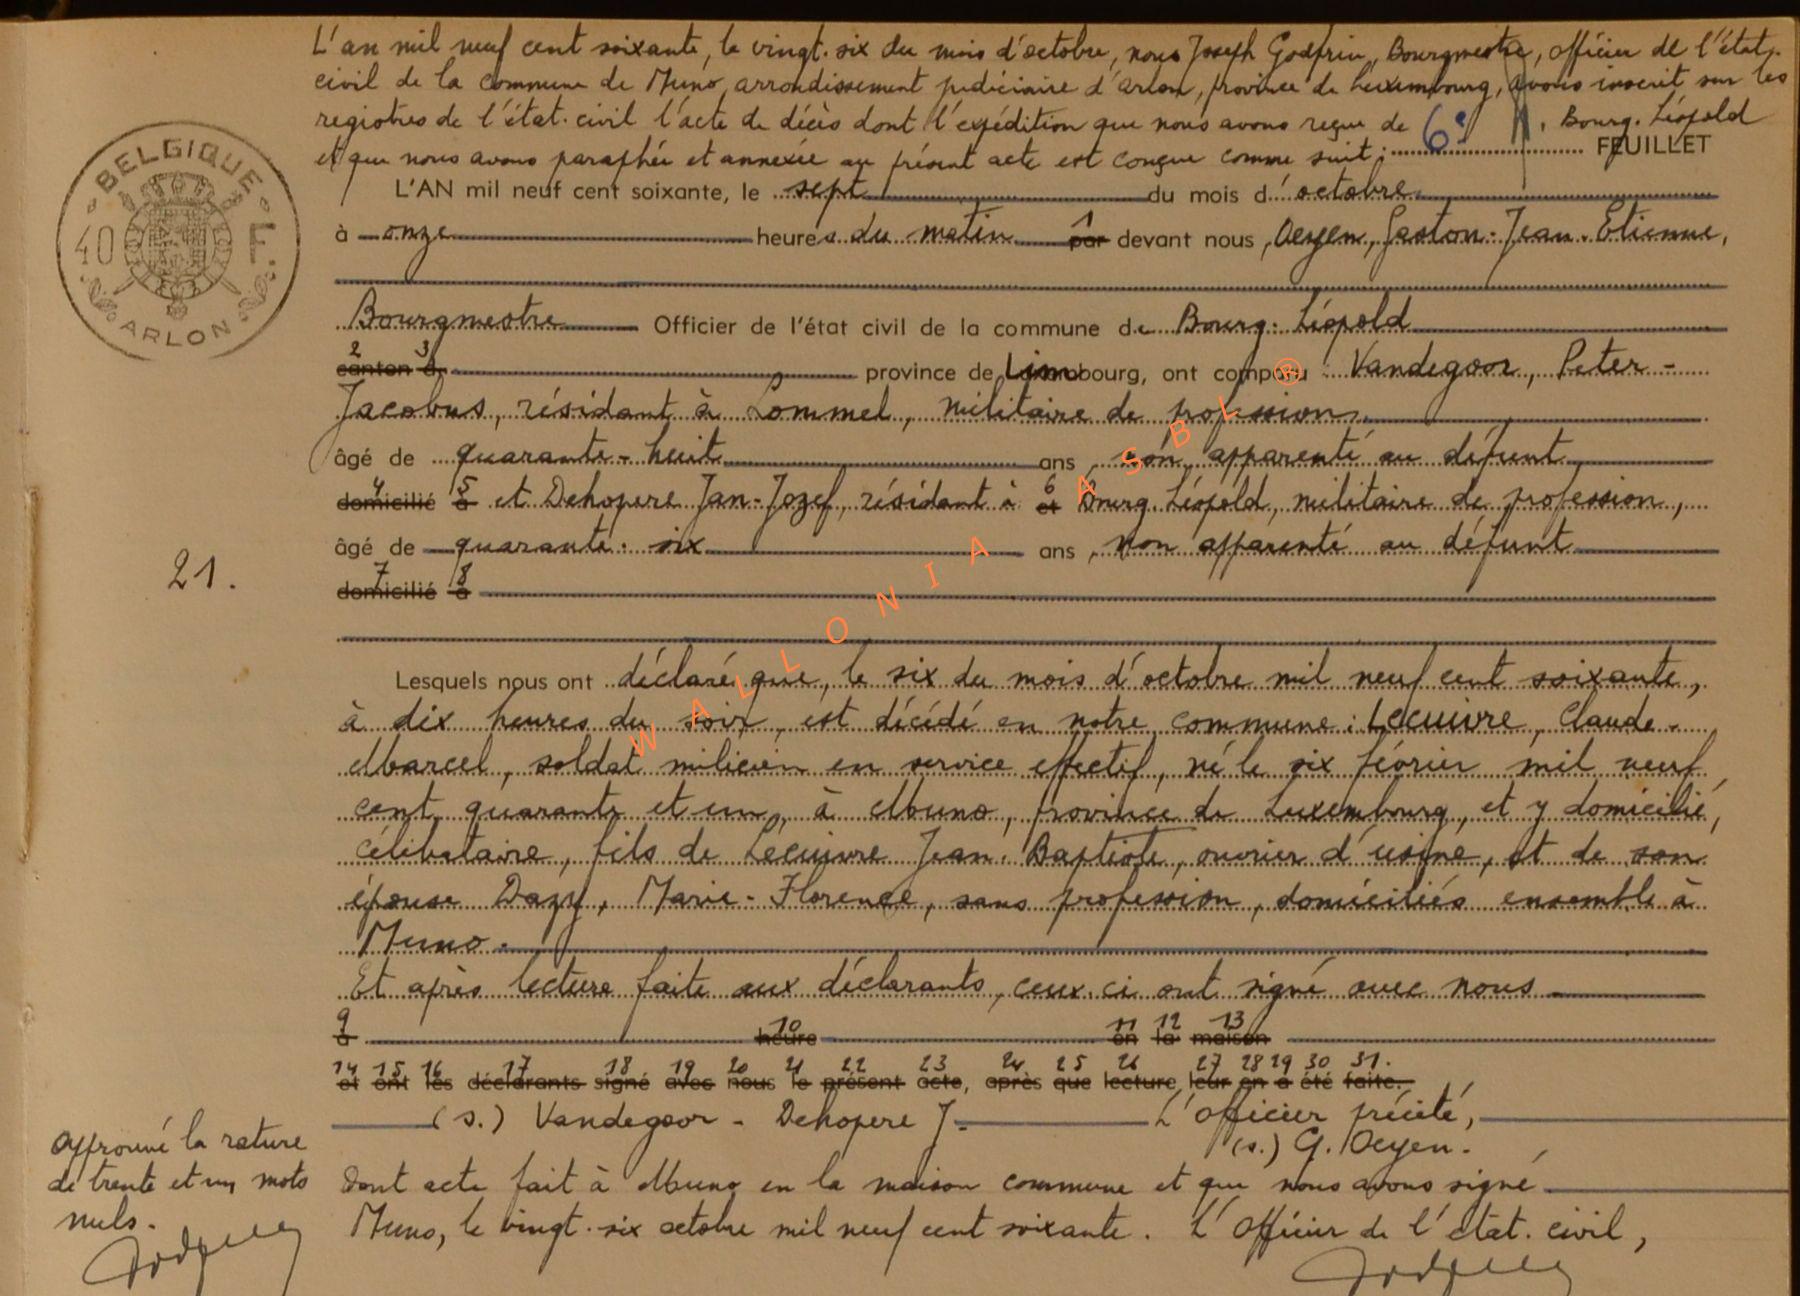 L'an mil neuf cent soixante, le vingt-six du mois d'octobre, nous Joseph Godfrin, Bourgmestre, officier de l'état-
civil de la commune de Muno, arrondissement judiciaire d'Arlon, province de Luxembourg, avons inscrit sur les
registres de l'état-civil l'acte de décès dont l'expédition que nous avons reçue de Bourg-Léopold
6e FEUILLET
et que nous avons paraphée et annexée au présent acte est conçue comme suit :
BELGIQUE
40 F.
ARLON
L'AN mil neuf cent soixante, le sept du mois d'octobre
à onze heures du matin 1 par devant nous, Oeyen, Gaston-Jean-Etienne,
Bourgmestre Officier de l'état civil de la commune de Bourg-Léopold
2 3
canton d province de Limbourg, ont comparu : Vandegoor, Peter-
Jacobus, résidant à Lommel, militaire de profession,
âgé de quarante-huit ans, non apparenté au défunt
4 5 6
domicilié à et Dehopere Jan-Jozef, résidant à et Bourg-Léopold, militaire de profession,
âgé de quarante-six ans, non apparenté au défunt
21.
7 8
domicilié à
Lesquels nous ont déclaré que, le six du mois d'octobre mil neuf cent soixante,
à dix heures du soir, est décédé en notre commune : Lecuivre, Claude-
Marcel, soldat milicien en service effectif, né le six février mil neuf
cent quarante et un, à Muno, province de Luxembourg, et y domicilié,
célibataire, fils de Lecuivre Jean-Baptiste, ouvrier d'usine, et de son
épouse Dazy, Marie-Florence, sans profession, domiciliés ensemble à
Muno.
Et après lecture faite aux déclarants, ceux-ci ont signé avec nous
9 10 11 12 13
à heure en la maison
14 15 16 17 18 19 20 21 22 23 24 25 26 27 28 29 30 31.
et ont les déclarants signé avec nous le présent acte, après que lecture leur en a été faite.
(s.) Vandegoor - Dehopere J. L'officier précité,
(s.) G. Oeyen.
Approuvé la rature
de trente et un mots
nuls.
Dont acte fait à Muno en la maison commune et que nous avons signé
Muno, le vingt-six octobre mil neuf cent soixante. L'officier de l'état-civil,
WALLONIA ASBL ®